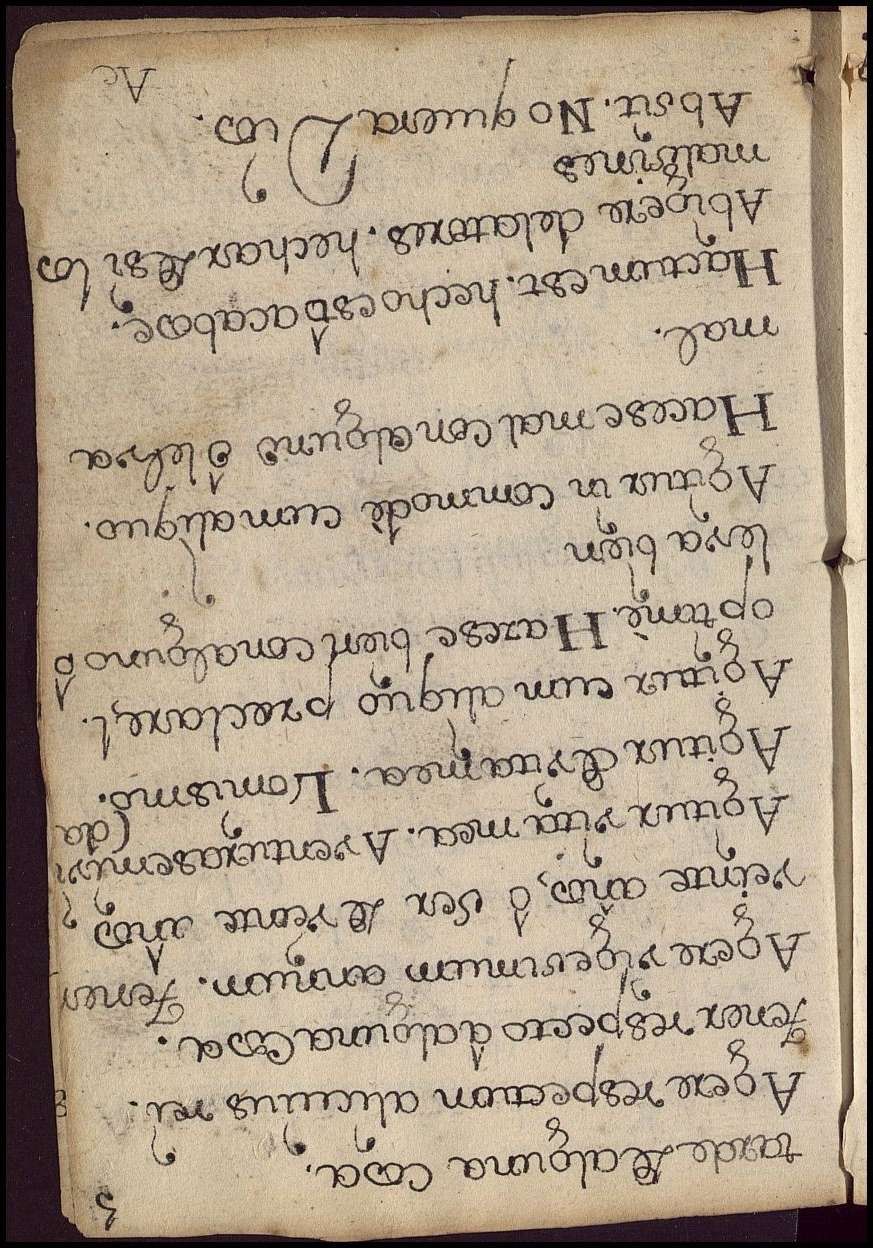 3
tarde de alguna cosa.
Agere respectum alicuius rei.
Tener respecto a alguna cosa.
Agere vigesimum annum. Tener
veinte años, o ser de veinte años
Agitur vita mea. Aventurase mi vi
(da
Agitur de vita mea. Lo mismo.
Agitur cum aliquo præclare, l.
optimè. Hazese bien con alguno o
le va bien
Agitur in commodè cum aliquo.
Hacese mal con alguno o le va
mal.
Hactum est. hecho es o acabose.
Abigere delatores. hechar de si los
malsines
Absit. No quiera Dios.
Ac